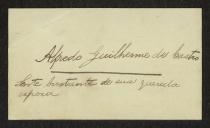 Alfredo Guilherme de Castro
de sua querida
esposa